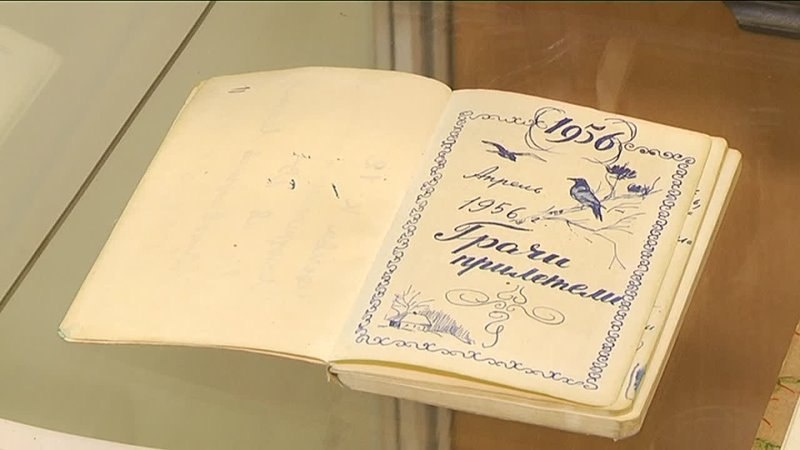 1956
Апрель
1956 г.
Грачи
прилетели